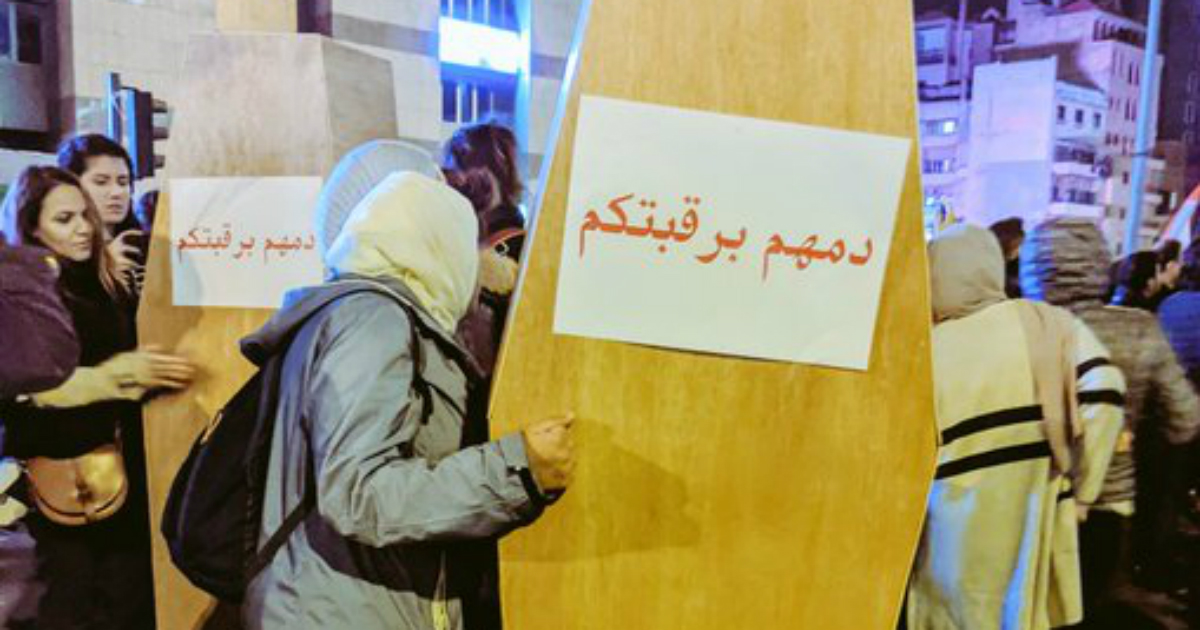 دمهم برقبتكم
دمهم برقبتكم